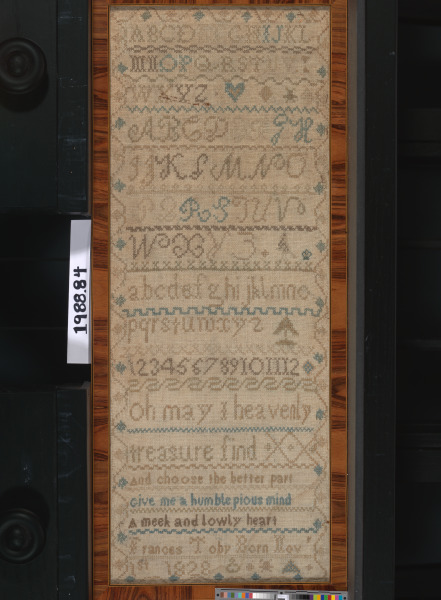 ABCD GHIJKL
MNOPQRSTUV
WXYZ
ABCD GH
IJKLMNO
RSTUV
WXYZ.
abcdefghijklmno
pqrstuvwxyz
123456789101112
Oh may I heavenly
treasure find
And choose the better part
Give me a humble pious mind
A meek and lowly heart
Frances Toby Born Nov
1st 1828
1988.84